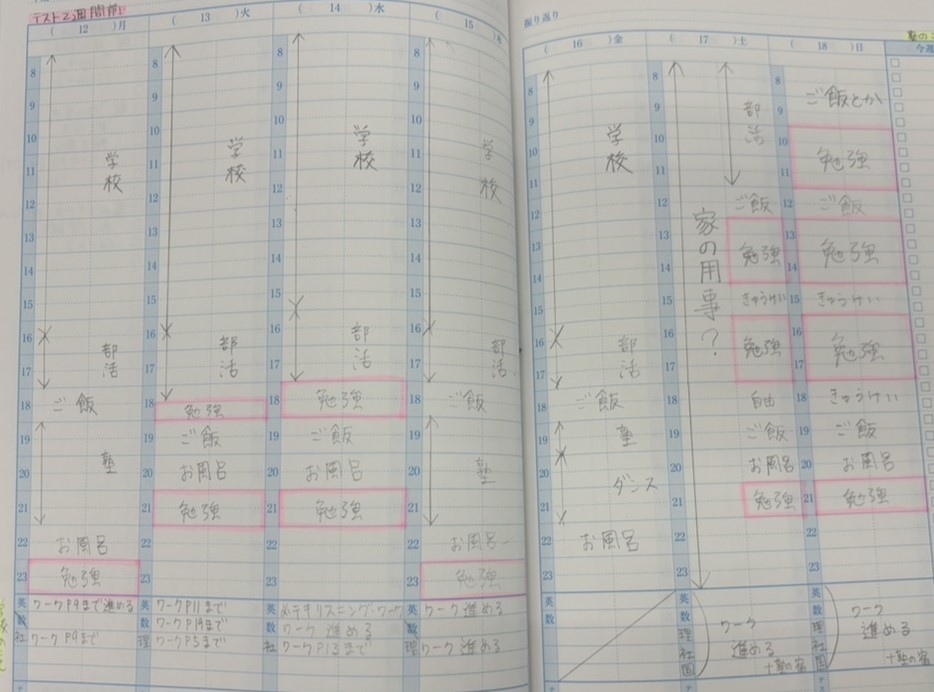 テスト2週間前
( 12 )月
8
9
10
11
12
13
14
15
16
17
18
19
20
21
22
23
学校
部活
ご飯
塾
お風呂
勉強
英 ワークP9まで進める
数
社 ワークP9まで
( 13 )火
8
9
10
11
12
13
14
15
16
17
18
19
20
21
22
23
学校
部活
勉強
ご飯
お風呂
勉強
英 ワークP11まで
数 ワークP19まで
理 ワークP5まで
( 14 )水
8
9
10
11
12
13
14
15
16
17
18
19
20
21
22
23
学校
部活
勉強
ご飯
お風呂
勉強
英 リスニング・ワーク
数 ワーク 進める
社 ワークP13まで
( 15 )木
8
9
10
11
12
13
14
15
16
17
18
19
20
21
22
23
学校
部活
ご飯
塾
お風呂
勉強
英 ワーク進める
数
理 ワーク進める
振り返り
( 16 )金
8
9
10
11
12
13
14
15
16
17
18
19
20
21
22
23
学校
部活
ご飯
塾
ダンス
お風呂
英
数
社
( 17 )土
8
9
10
11
12
13
14
15
16
17
18
19
20
21
22
23
家の用事?
部活
ご飯
勉強
きゅうけい
勉強
自由
ご飯
お風呂
勉強
英
数
理
社
国
ワーク
進める
+塾の宿
( 18 )日
8
9
10
11
12
13
14
15
16
17
18
19
20
21
22
23
ご飯とか
勉強
ご飯
勉強
きゅうけい
勉強
きゅうけい
ご飯
お風呂
勉強
英
数
理
社
国
ワーク
進める
+塾の宿
今週